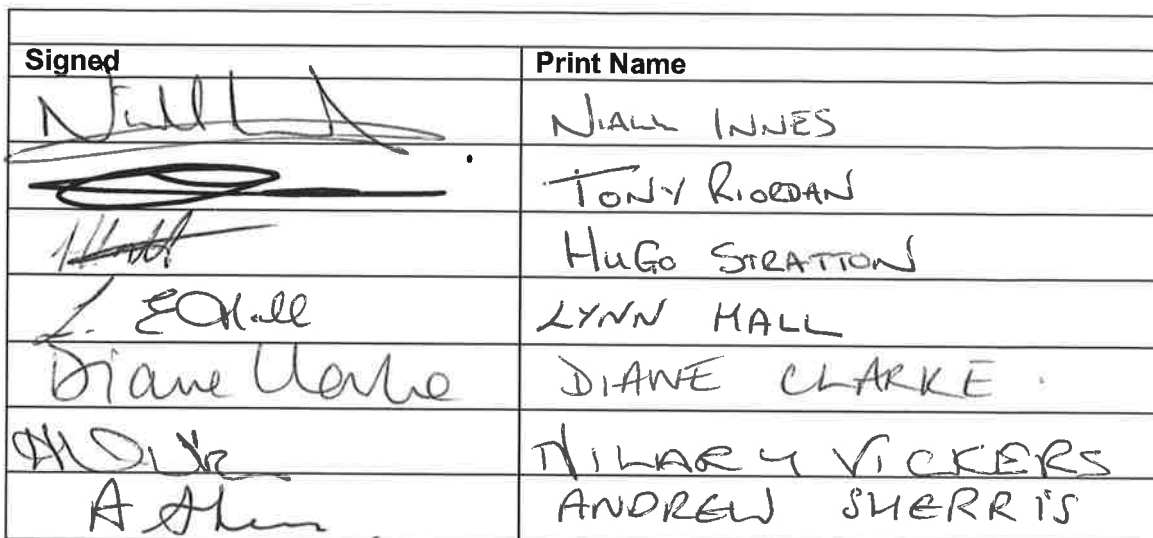 Signed Print Name
NIALL INNES
TONY RIORDAN
HUGO STRATTON
L. E Hall LYNN HALL
Diane Clarke DIANE CLARKE.
HILARY VICKERS
ANDREW SHERRIS